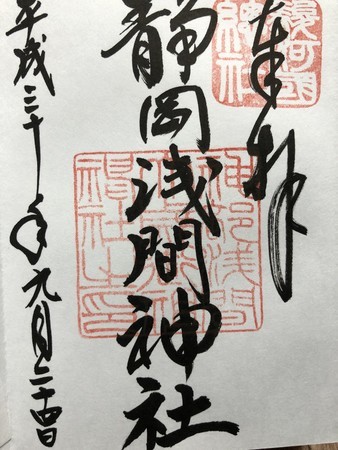 駿河國
總社
奉拝
静岡浅間神社
神部浅間
神社之印
平成三十年九月二十四日